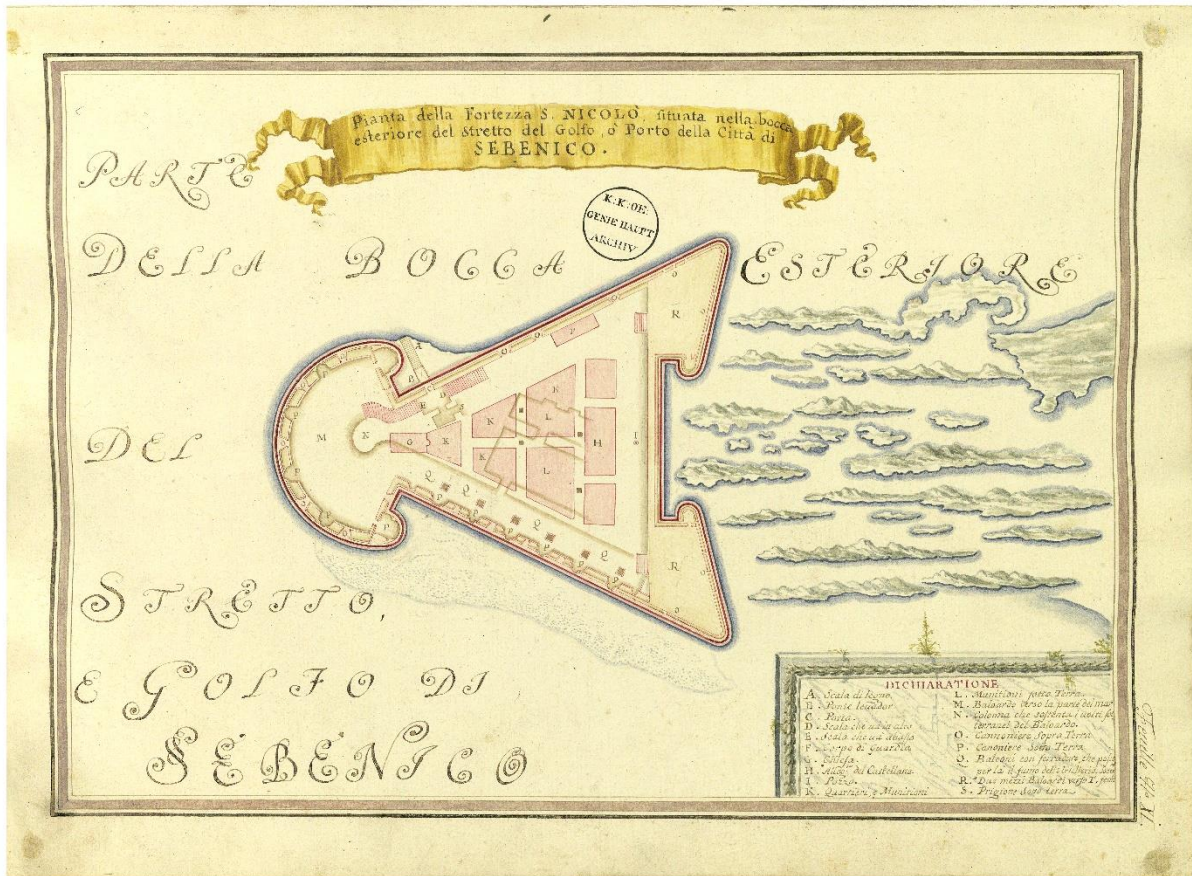 Pianta della Fortezza S. NICOLÒ, situata nella bocca
esteriore del stretto del Golfo, ò Porto della Città di
SEBENICO.
K:K:OE:
GENIE HAUPT
ARCHIV
PARTE
DELLA BOCCA ESTERIORE
DEL
STRETTO,
E GOLFO DI
SEBENICO
A
B
C
D
E
P
R
M
N
G
K
K
K
K
L
L
H
I
Q
Q
Q
Q
Q
P
R
DICHIARATIONE
A. Scala di legno
B. Ponte leuador
C. Porta
D. Scala che
E. Scala che
F. Corpo di Guardia
G. Chiesa
H. Allog. del Castellano
I. Pozzo
K. Quartieri, e Munitioni
L. Munitioni sotto Terra
M. Baloardo verso la parte del mar
N. Colonna che sostenta i volti
terrazzi del Baloardo.
O. Cannoniere sopra Terra
P. Canoniere Sotto Terra
Q. Balconi con
per la il fumo
R. Due mezzi Baloardi verso T.
S. Prigione sotto terra